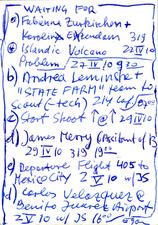 WAITING FOR
a) Fabienna Zurkirchen +
Karoline Extendem 319
* Islandic Volcano 22 IV 10
Problem / 27 IV 10 920
b) Andrea Leminske +
"STATE FARM" team to
Scout (-tech) 214
c) Start Shoot ↑ @ ↑ 29 IV 10
d) James Merry (Assitent of B
29 IV 10 319
e) Departure Flight 405 to
Mexico City 2 V 10 w/ JS
d) Carlos Velazquez @
Benito Juarez Airport
2 V 10 w/ JS 1600